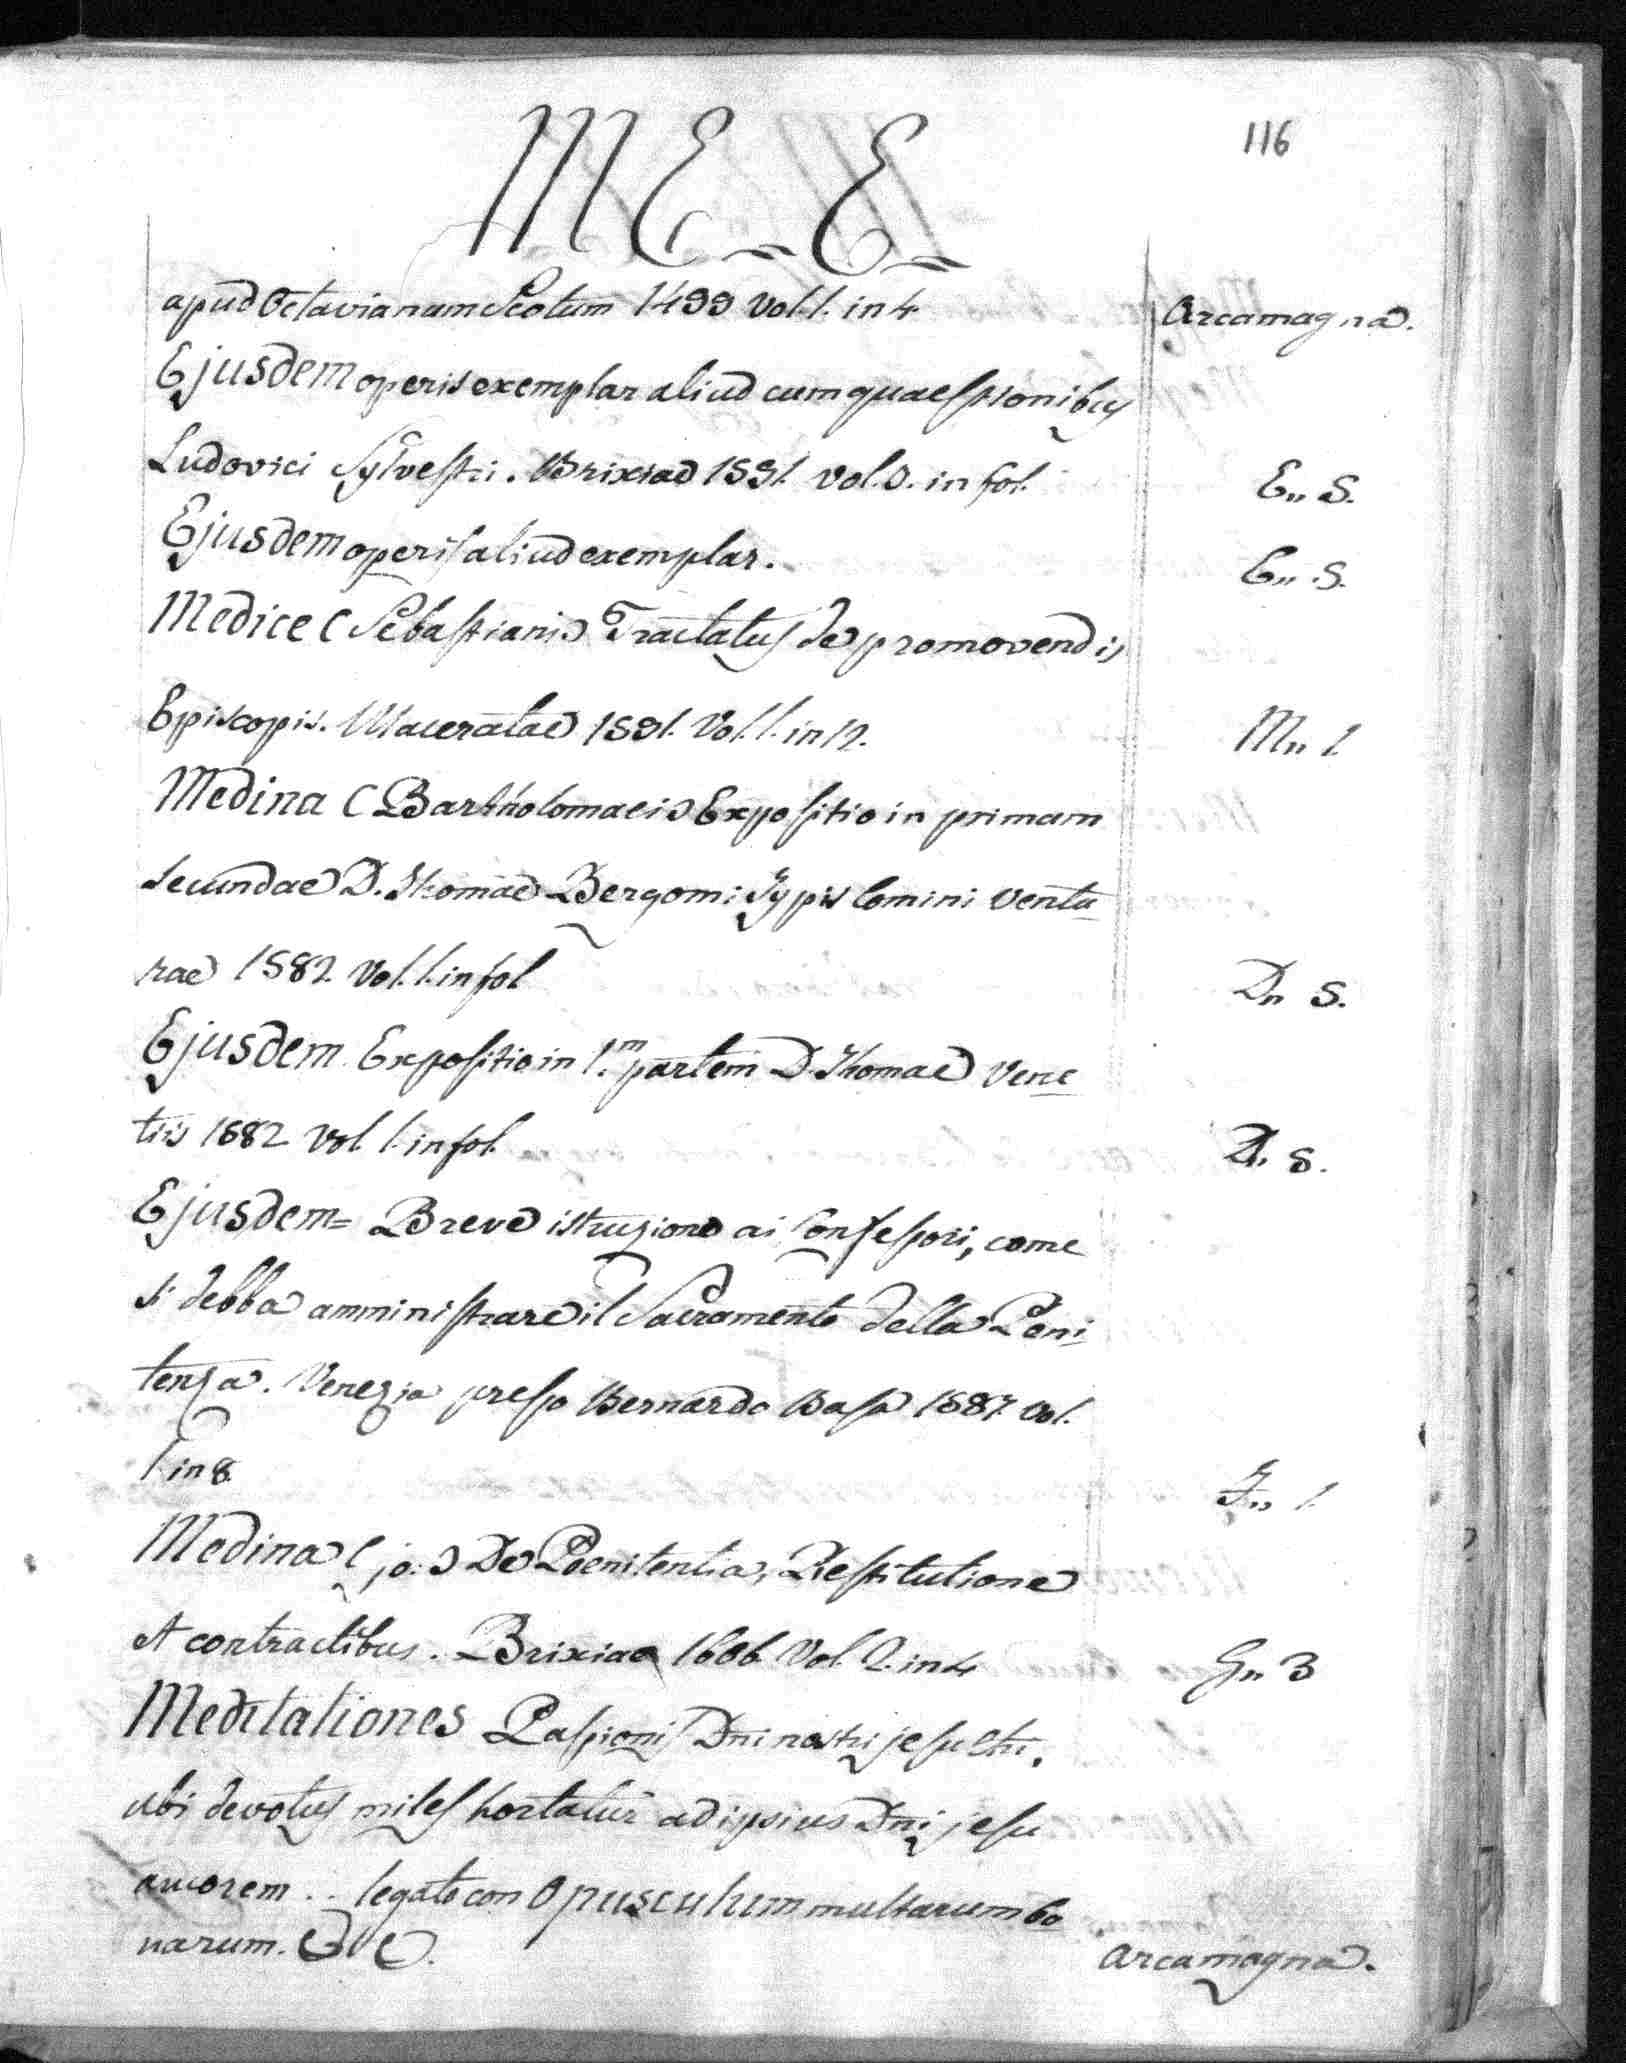 116
ME_E_
apud Octavianum Scotum 1499 Vol. 1. in 4. Arcamagna.
Ejusdem operis exemplar aliud cum quaestionibus
Ludovici Sylvestri. Brixiae 1591. Vol. 2. in fol. E,, 5.
Ejusdem operis aliud exemplar. E,, 5.
Medice (Sebastiani) Tractatus de promovendis
Episcopis. Maceratae 1591. Vol. 1. in 12. M,, 1.
Medina (Bartholomaei) Expositio in primam
secundae D. Thomae Bergomi Typis Comini Ventu
rae 1582. Vol. 1. in fol D,, 5.
Ejusdem Expositio in 1.m partem D. Thomae Vene
tiis 1582 Vol. 1. in fol. D,, 5.
Ejusdem = Breve istruzione ai Confessori, come
si debba amministrare il Sacramento della Peni
tenza. Venezia presso Bernardo Basa 1587. Vol.
1. in 8. I,, 1.
Medina (jo:) De Poenitentia, Restitutione
et contractibus. Brixiae 1606 Vol. 2. in 4 G,, 3
Meditationes Passionis Dni nostri jesu Chri.
ubi devotus miles hortatur ad ipsius Dni jesu
amorem .. legato con Opusculum multarum bo
narum. &c. Arcamagna.